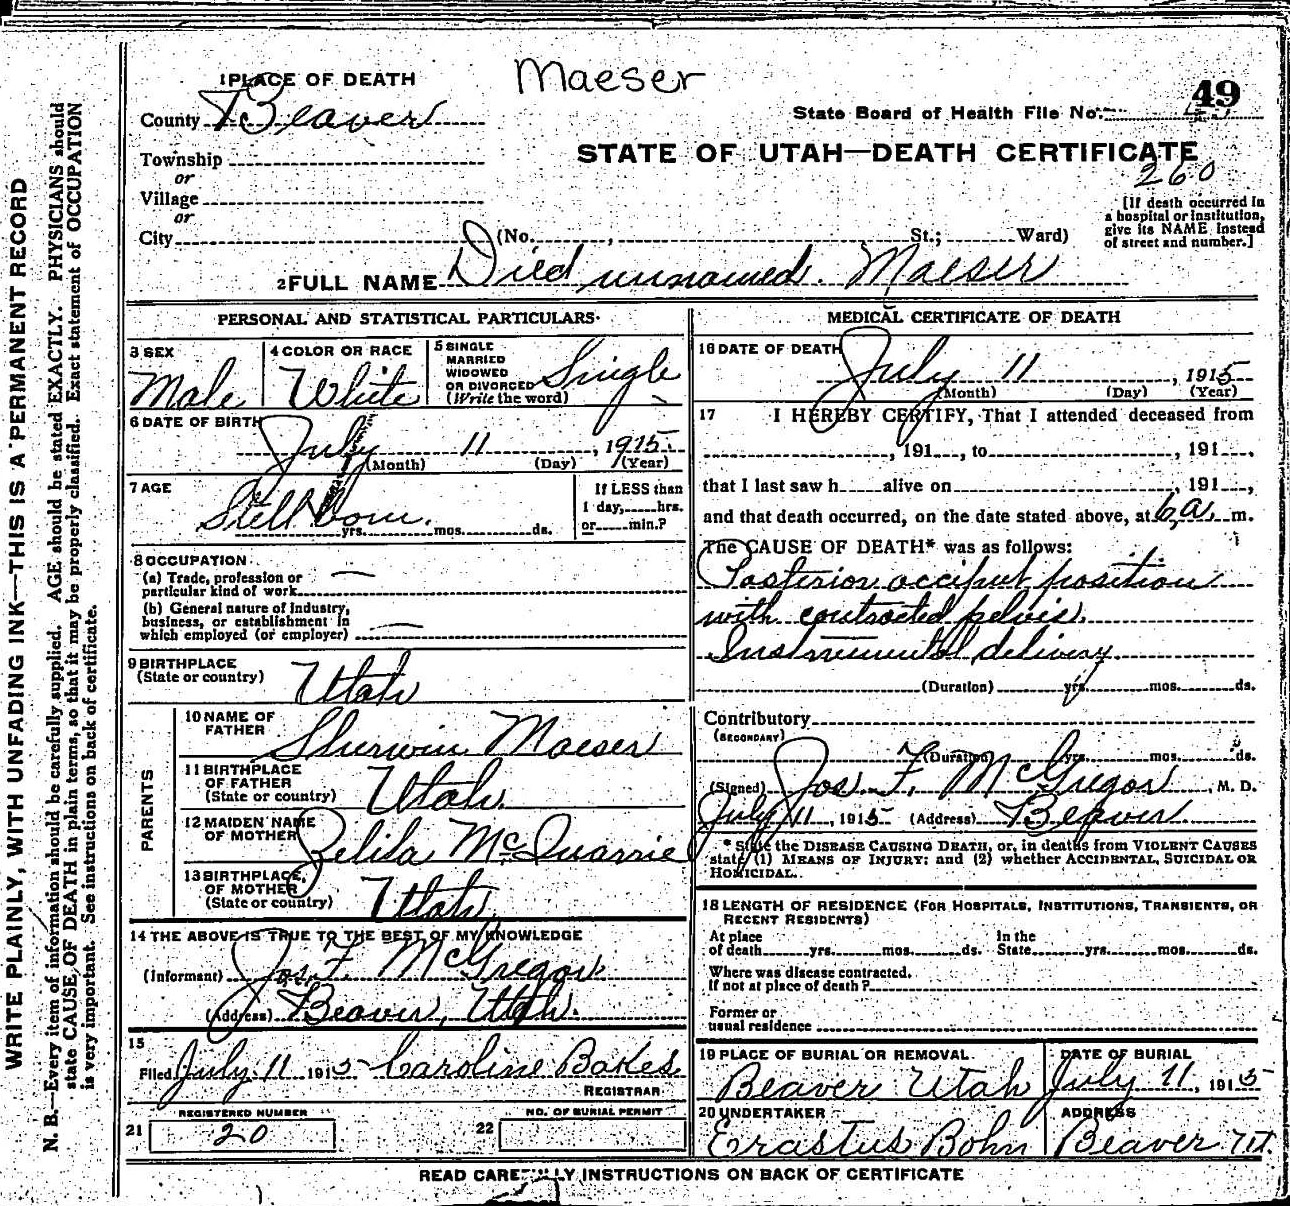 Maeser
1 PLACE OF DEATH
County Beaver
State Board of Health File No. 49
STATE OF UTAH—DEATH CERTIFICATE
260
Township
or
Village
or
City (No. , St.; Ward)
[If death occurred in
a hospital or institution,
give its NAME instead
of street and number.]
2 FULL NAME Died unnamed. Maeser
PERSONAL AND STATISTICAL PARTICULARS
3 SEX
Male
4 COLOR OR RACE
White
5 SINGLE
MARRIED
WIDOWED
OR DIVORCED
(Write the word)
Single
6 DATE OF BIRTH
July 11, 1915
(Month) (Day) (Year)
7 AGE
Still born.
yrs. mos. ds.
If LESS than
1 day, hrs.
or min.?
8 OCCUPATION
(a) Trade, profession or
particular kind of work —
(b) General nature of Industry,
business, or establishment in
which employed (or employer) —
9 BIRTHPLACE
(State or country)
Utah
PARENTS
10 NAME OF
FATHER
Sherwin Maeser
11 BIRTHPLACE
OF FATHER
(State or country)
Utah.
12 MAIDEN NAME
OF MOTHER
Zelila McQuarrie
13 BIRTHPLACE
OF MOTHER
(State or country)
Utah
14 THE ABOVE IS TRUE TO THE BEST OF MY KNOWLEDGE
(Informant) Jos. F. McGregor
(Address) Beaver, Utah.
15
Filed July 11 1915 Caroline Bakes
REGISTRAR
REGISTERED NUMBER
21 20
NO. OF BURIAL PERMIT
22
MEDICAL CERTIFICATE OF DEATH
16 DATE OF DEATH
July 11, 1915
(Month) (Day) (Year)
17 I HEREBY CERTIFY, That I attended deceased from
, 191 , to , 191 ,
that I last saw h alive on , 191 ,
and that death occurred, on the date stated above, at 6 a. m.
The CAUSE OF DEATH* was as follows:
Posterior occiput position
with contracted pelvis.
Instrumental delivery.
(Duration) yrs. mos. ds.
Contributory
(SECONDARY)
(Duration) yrs. mos. ds.
(Signed) Jos. F. McGregor, M. D.
July 11, 1915 (Address) Beaver
* State the DISEASE CAUSING DEATH, or, in deaths from VIOLENT CAUSES
state (1) MEANS OF INJURY; and (2) whether ACCIDENTAL, SUICIDAL OR
HOMICIDAL.
18 LENGTH OF RESIDENCE (FOR HOSPITALS, INSTITUTIONS, TRANSIENTS, OR
RECENT RESIDENTS)
At place
of death yrs. mos. ds.
In the
State yrs. mos. ds.
Where was disease contracted.
If not at place of death?
Former or
usual residence
19 PLACE OF BURIAL OR REMOVAL
Beaver Utah
DATE OF BURIAL
July 11, 1915
20 UNDERTAKER
Erastus Bohn
ADDRESS
Beaver Ut.
READ CAREFULLY INSTRUCTIONS ON BACK OF CERTIFICATE
WRITE PLAINLY, WITH UNFADING INK—THIS IS A PERMANENT RECORD
N. B.—Every item of information should be carefully supplied. AGE should be stated EXACTLY. PHYSICIANS should
state CAUSE OF DEATH in plain terms, so that it may be properly classified. Exact statement of OCCUPATION
is very important. See instructions on back of certificate.